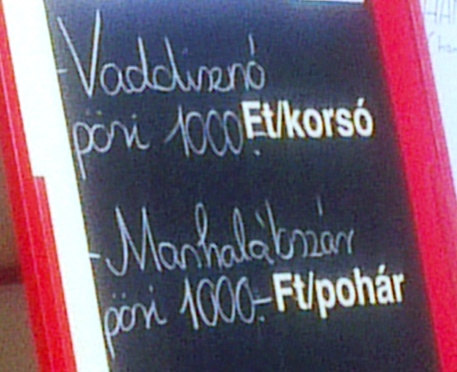 -Vaddisznó
pöri 1000.- Ft/korsó
-Marhalábszár
pöri 1000.- Ft/pohár